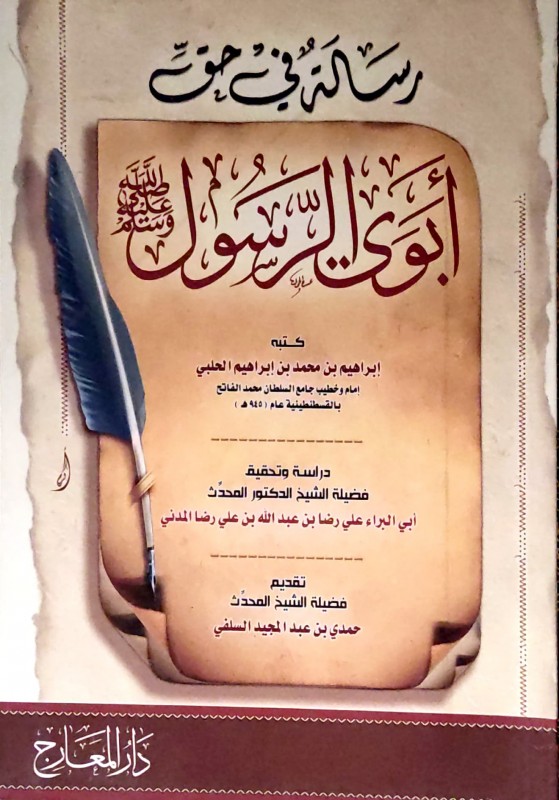 رسالة في حق
أبوي الرسول صلى الله عليه وسلم
كتبه
إبراهيم بن محمد بن إبراهيم الحلبي
إمام وخطيب جامع السلطان محمد الفاتح
بالقسطنطينية عام (٩٤٥ هـ)
دراسة وتحقيق
فضيلة الشيخ الدكتور المحدِّث
أبي البراء علي رضا بن عبد الله بن علي رضا المدني
تقديم
فضيلة الشيخ المحدِّث
حمدي بن عبد المجيد السلفي
دار المعارج